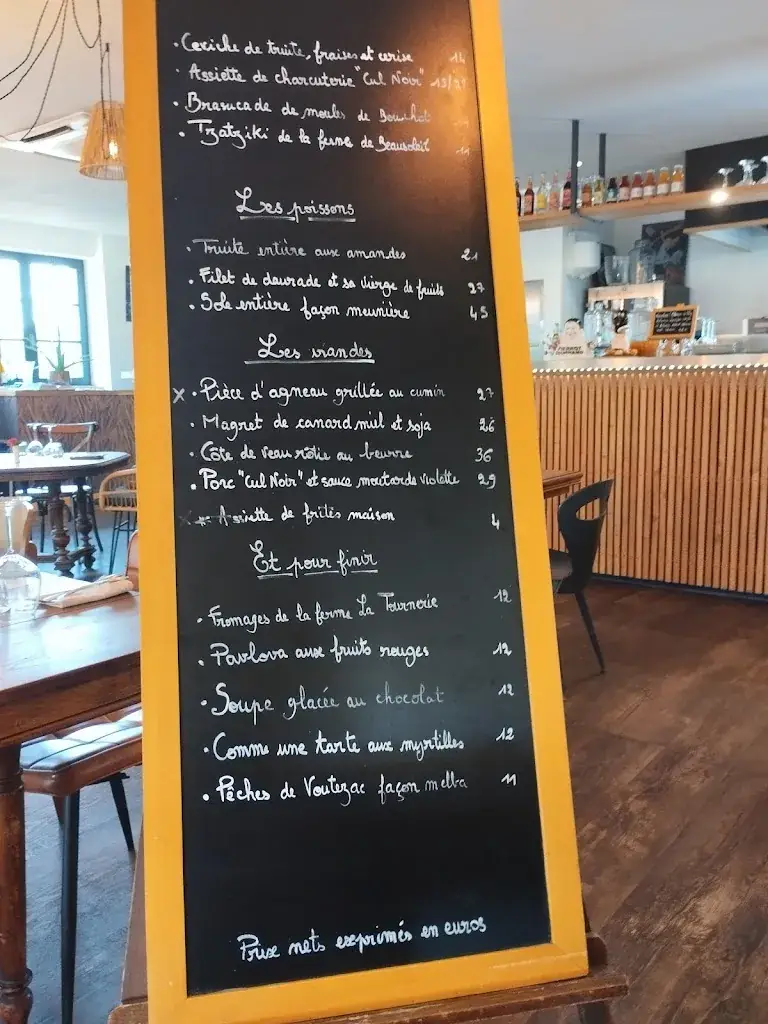 • Ceviche de truite, fraises et cerise 14
• Assiette de charcuterie "Cul Noir"
• Brasucade de moules de Bouchot
• Tzatziki de la ferme de Beausoleil 11
Les poissons
• Truite entière aux amandes 21
• Filet de daurade et sa vierge de fruits 27
• Sole entière façon meunière 45
Les viandes
x • Pièce d'agneau grillée au cumin 27
• Magret de canard miel et soja 26
• Côte de veau rôtie au beurre 36
• Porc "Cul Noir" et sauce moutarde violette 29
Assiette de frites maison 4
Et pour finir
• Fromages de la ferme La Tournerie 12
• Pavlova aux fruits rouges 12
• Soupe glacée au chocolat 12
• Comme une tarte aux myrtilles 12
• Pêches de Voutezac façon melba 11
Prix nets exprimés en euros